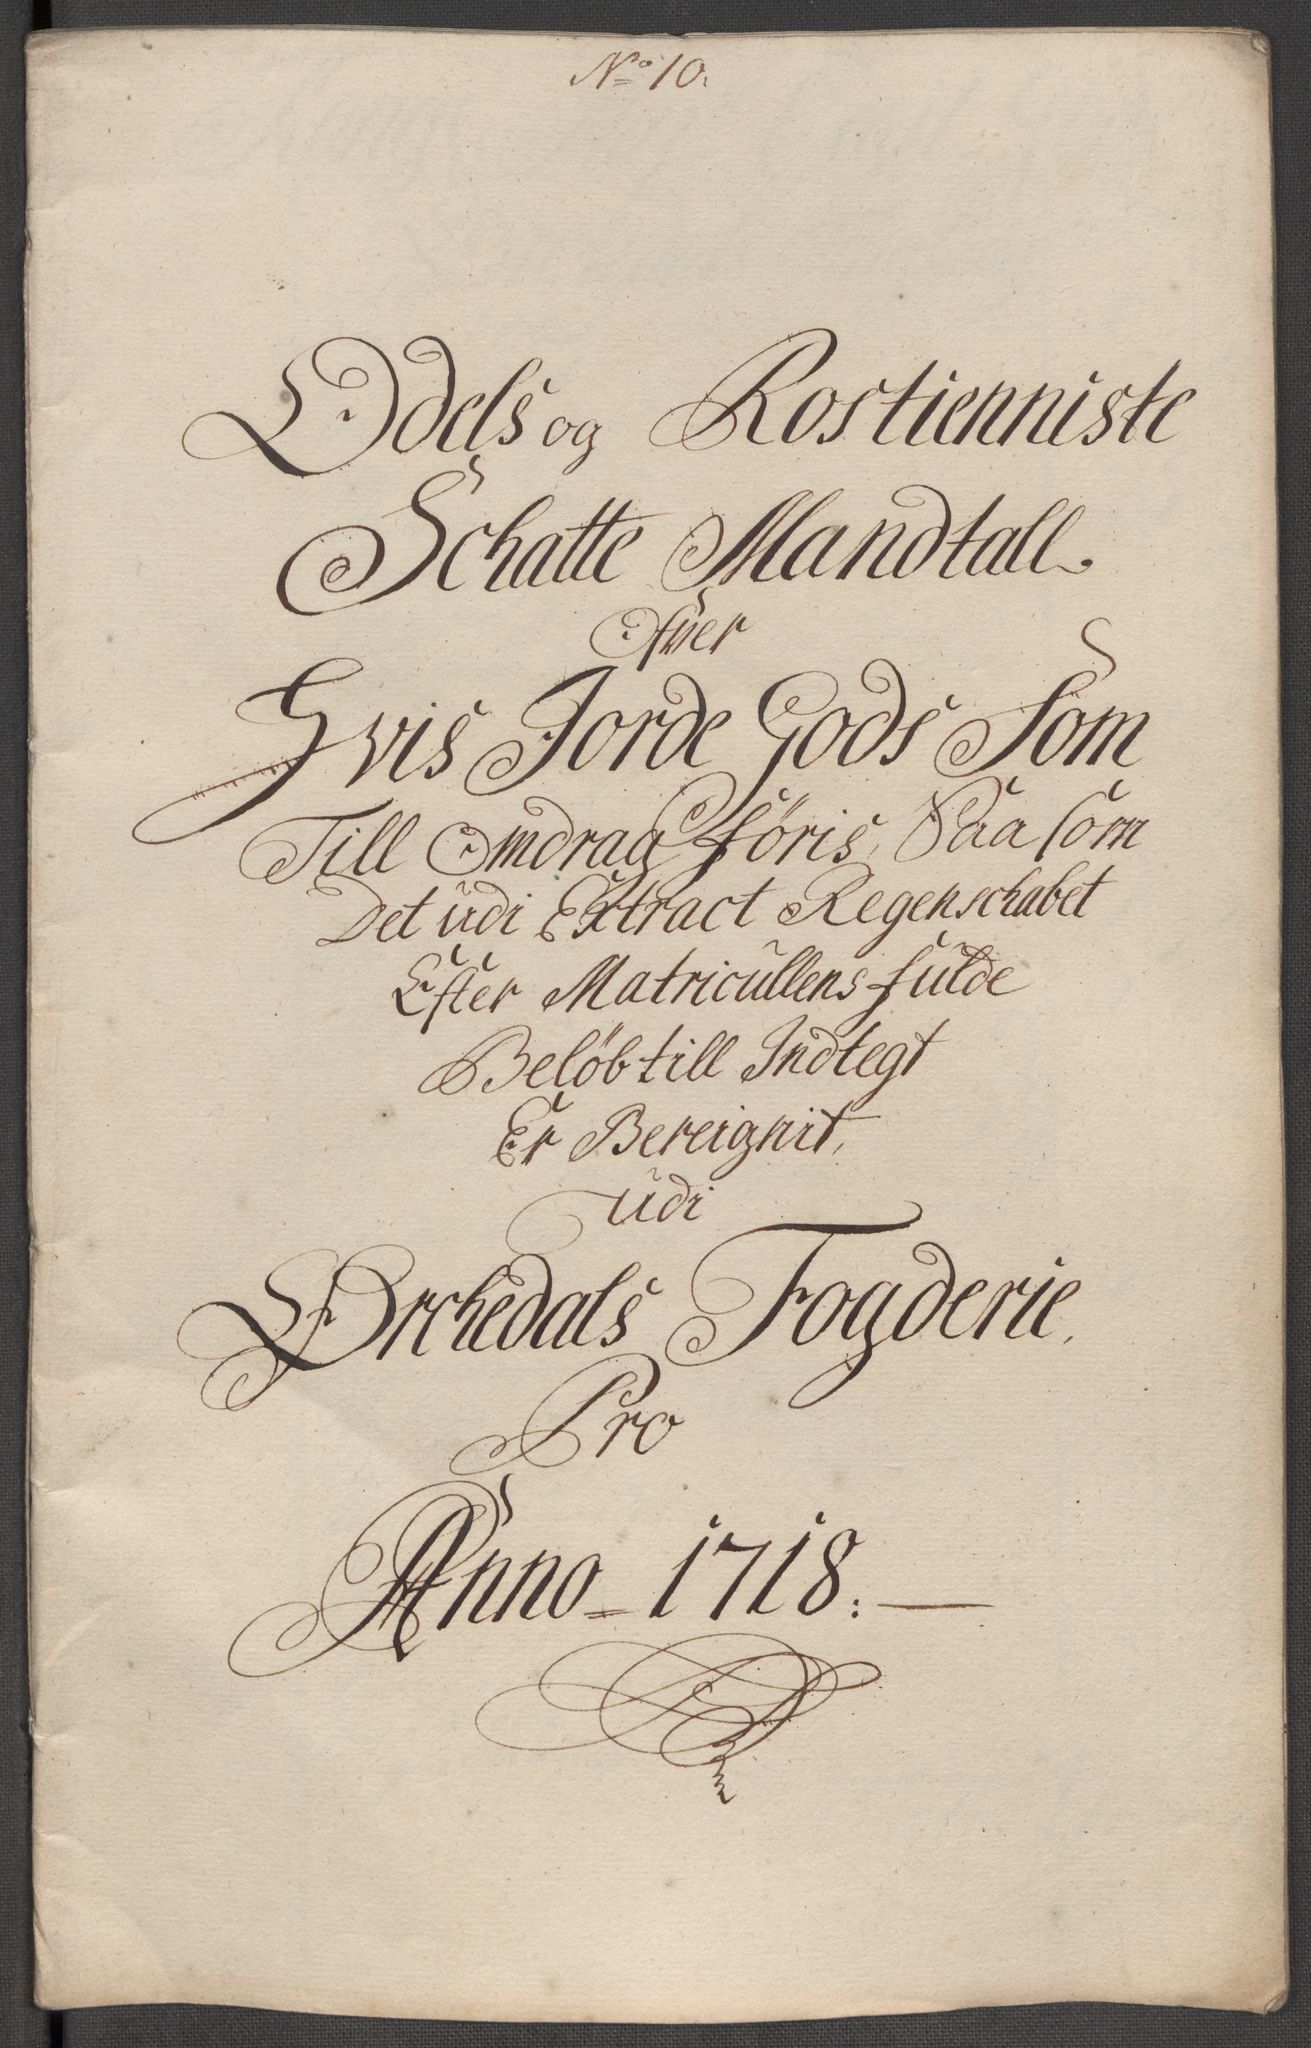 No 10.
Odels og Rostienniste
Schatte Mandtall
Ofuer
Hvis Jorde Gods Som
Till Omdrag föris, Saa som
Det udi Extract Regenschabet
Efter Matricullens fulde
Belöb till Indtegt
Er Bereignit,
udi
Ørchedals Fogderie,
Pro
Anno = 1718: